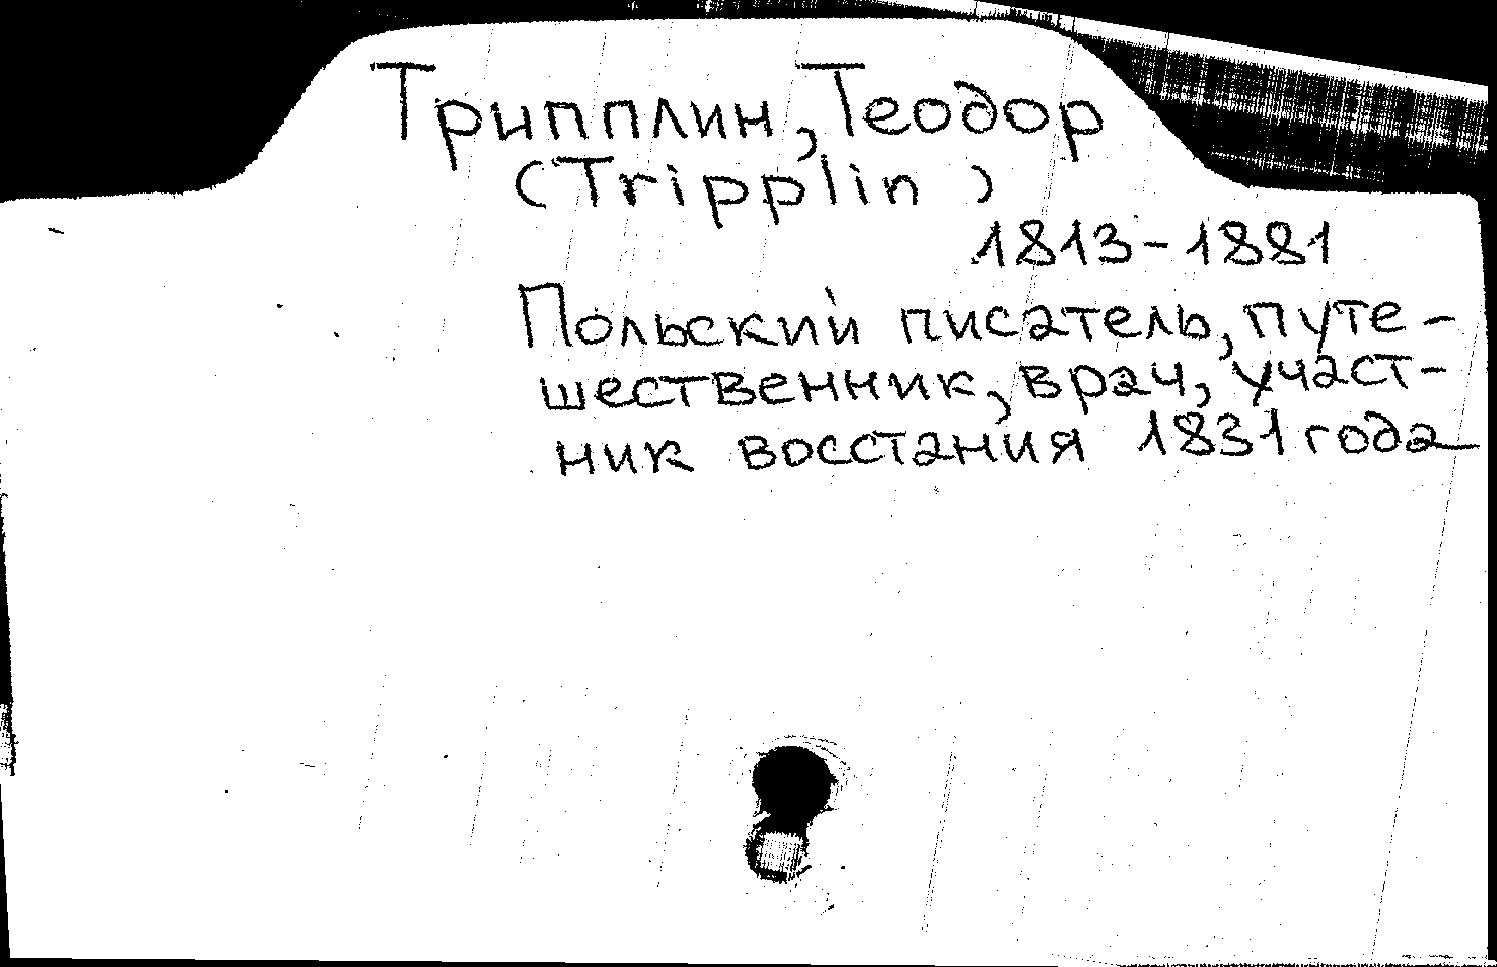 Трипплин, Теодор
(Tripplin)
1813-1881
Польский писатель, путе-
шественник, врач, участ-
ник восстания 1831 года